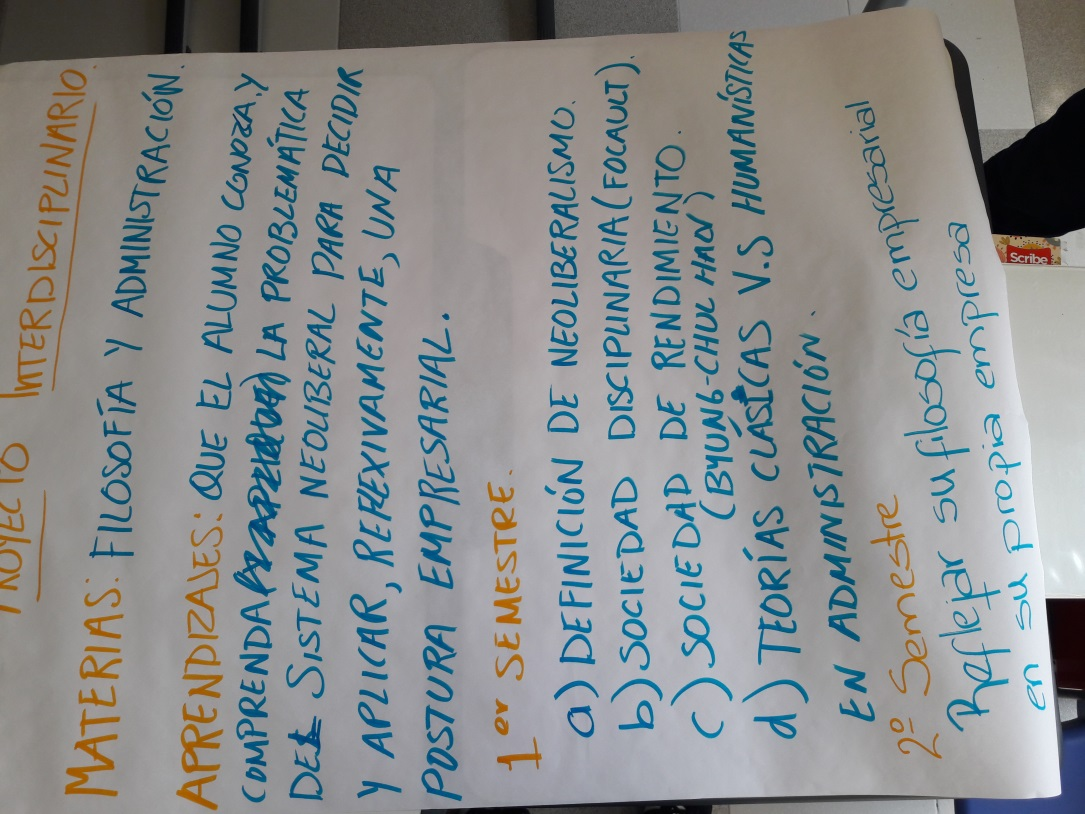 PROYECTO INTERDISCIPLINARIO.
MATERIAS: FILOSOFÍA Y ADMINISTRACIÓN.
APRENDIZAJES: QUE EL ALUMNO CONOZA, Y
COMPRENDA LA PROBLEMÁTICA
DEL SISTEMA NEOLIBERAL PARA DECIDIR
Y APLICAR, REFLEXIVAMENTE, UNA
POSTURA EMPRESARIAL.
1er SEMESTRE.
a) DEFINICIÓN DE NEOLIBERALISMO.
b) SOCIEDAD DISCIPLINARIA (FOCAULT).
c) SOCIEDAD DE RENDIMIENTO.
(BYUNG-CHUL HAN)
d) TEORÍAS CLÁSICAS V.S HUMANÍSTICAS
EN ADMINISTRACIÓN.
2º Semestre
Reflejar su filosofía empresarial
en su propia empresa
Scribe